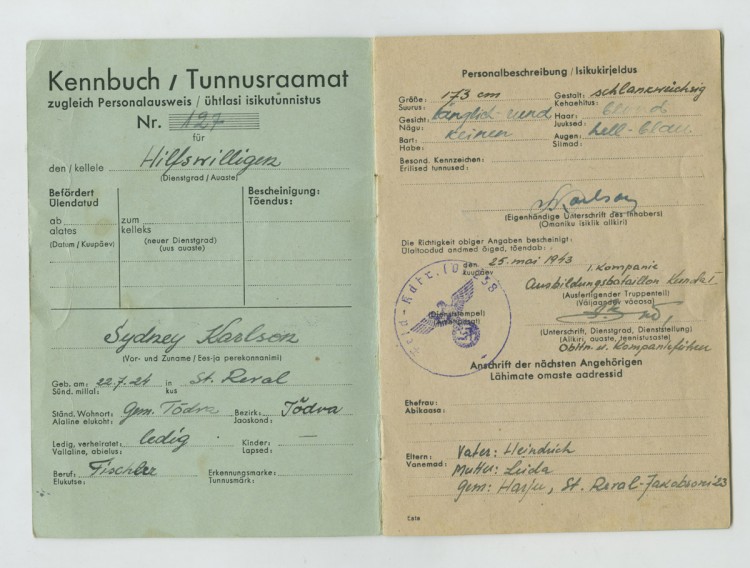 Kennbuch / Tunnusraamat
zugleich Personalausweis / ühtlasi isikutunnistus
Nr. 127
für
den / kellele Hilfswilligen
(Dienstgrad / Auaste)
Befördert
Ülendatud
Bescheinigung:
Tõendus:
ab
alates
zum
kelleks
(Datum / Kuupäev)
(neuer Dienstgrad)
(uus auaste)
Sydney Karlson
(Vor- und Zuname / Ees-ja perekonnanimi)
Geb. am: 22.7.24 in St. Reval
Sünd. millal: kus
Ständ. Wohnort: Gem. Tödva Bezirk: Jõdva
Alaline elukoht: Jaoskond:
Ledig, verheiratet: ledig Kinder: —
Vallaline, abielus: Lapsed:
Beruf: Tischler Erkennungsmarke:
Elukutse: Tunnusmärk:
Personalbeschreibung / Isikukirjeldus
Größe: 173 cm Gestalt: schlankwüchsig
Suurus: Kehaehitus:
Gesicht: länglich-rund Haar: blond
Nägu: Juuksed:
Bart: keinen Augen: hell-blau
Habe: Silmad:
Besond. Kennzeichen:
Erilised tunnused:
Karlson
(Eigenhändige Unterschrift des Inhabers)
(Omaniku isiklik allkiri)
Die Richtigkeit obiger Angaben bescheinigt:
Ülaltoodud andmed õiged, tõendab:
den 25. mai 1943
kuupäev
1. Kompanie
Ausbildungsbataillon
(Ausfertigender Truppenteil)
(Väljaandev väeosa)
(Dienststempel)
(Unterschrift, Dienstgrad, Dienststellung)
(Allkiri, auaste, teenistusaste)
Obltn. u. Kompanieführer
Anschrift der nächsten Angehörigen
Lähimate omaste aadressid
Ehefrau:
Abikaasa:
Eltern: Vater: Heindrich
Vanemad: Mutter: Leida
Gem: Harju, St. Reval-Jakobsoni 23